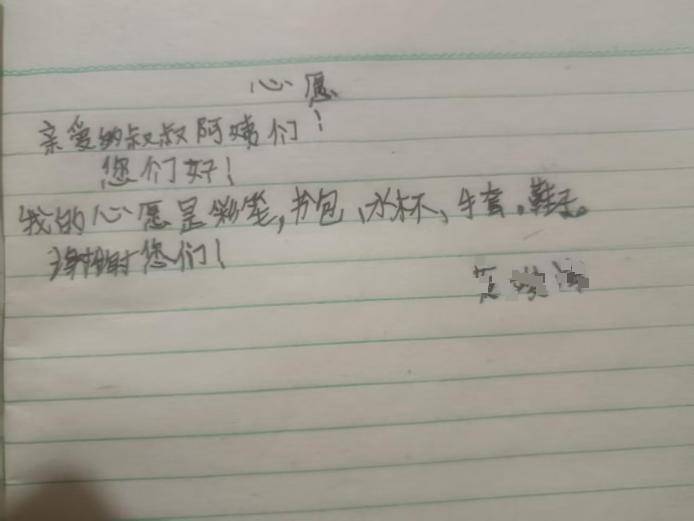 心愿
亲爱的叔叔阿姨们！
您们好！
我的心愿是彩笔,书包、水杯、手套。鞋子。
谢谢您们！